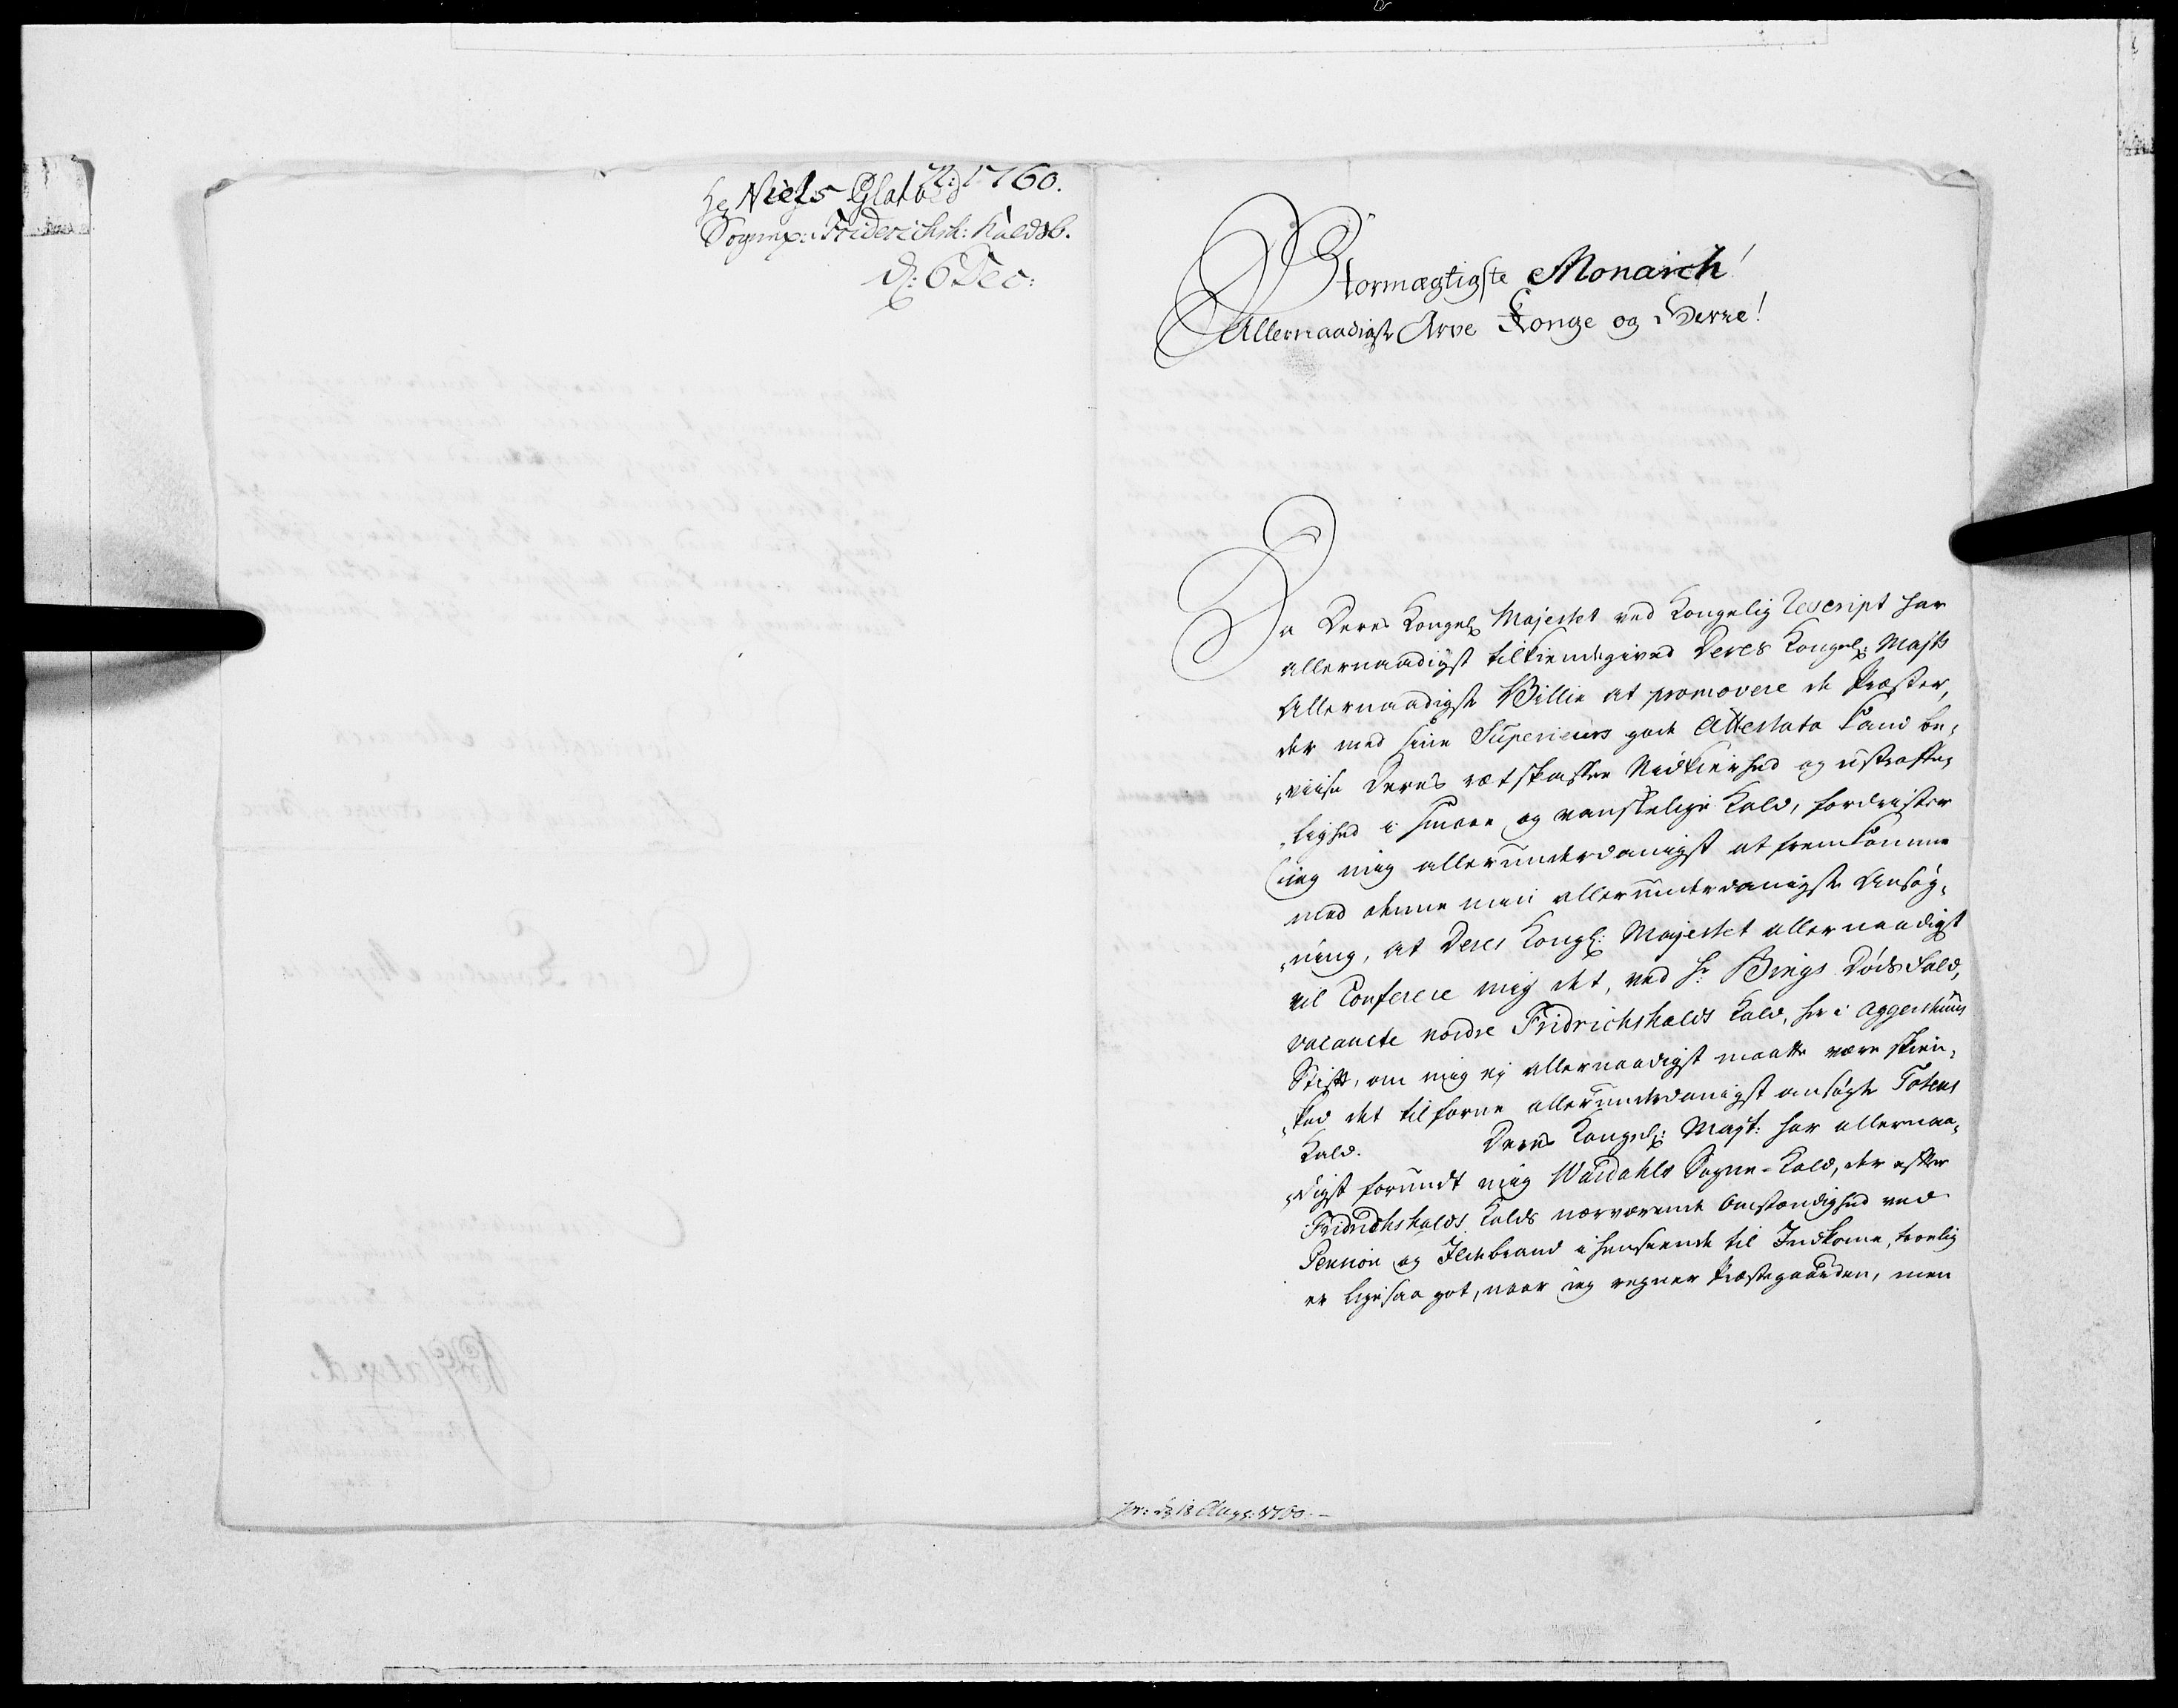 N: 1760.
Hr Niels Glatved
Sognepr: Friderichsh: Kaldsb.
d: 6 Dec:
Stormægtigste Monarch!
Allernaadigste Arve Konge og Herre!
Da Deres Kongel: Majestet ved Kongelig Rescript har
allernaadigst tilkiendegived Deres Kongel: Majts
Allernaadigste Villie at promovere de Præster,
der med sine Superieurs gode Attestata kand be„
„viise Deres retskafne Nidkierhed og ustraffe„
„lighed i smaae og vanskelige Kald, fordrister
jeg mig allerunderdanigst at fremkomme
med denne min allerunderdanigste Ansøg„
„ning, at Deres Kongl: Majestet allernaadigst
vil Conferere mig det, ved Hr: Bings Dødsfald,
vacante nordre Fridrichshalds Kald, her i Aggershuus
Stift, om mig ej allernaadigst maatte være skien„
„ked det tilforne allerunderdanigst ansøgte Totens
Kald. Deres Kongel: Mayt: har allernaa„
„digst forundt mig Wardahls Sogne-Kald, der efter
Fridrichshalds Kalds nærværende Omstændighed ved
Pension og Ildebrand i henseende til Indkome, troelig
er ligesaa got, naar jeg regner Præstegaarden, men
pr: d: 18 Aug: 1760.